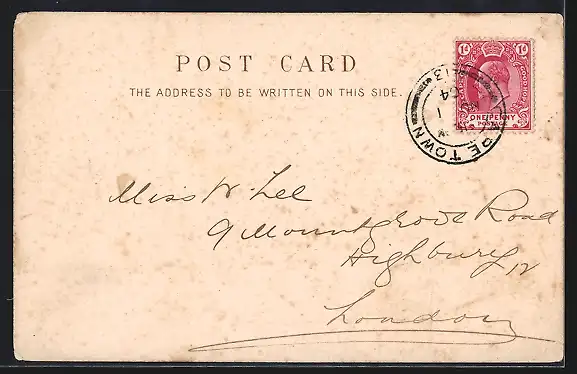 POST CARD
THE ADDRESS TO BE WRITTEN ON THIS SIDE.
1D 1D
ONE PENNY
POSTAGE
TOWN
04
Miss W Lee
9 Mountgrove Road
Highbury N
London